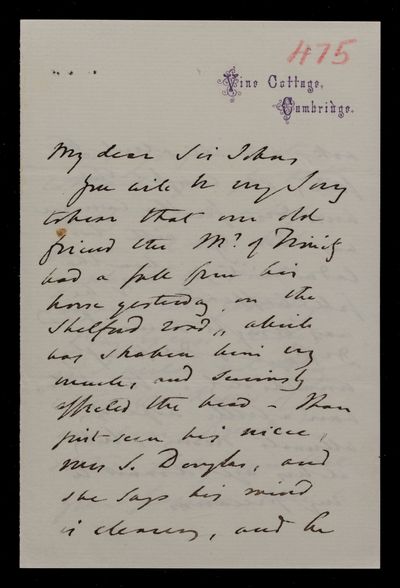 475
Vine Cottage,
Cambridge.
My dear Sir John,
You will be very sorry
to hear that our old
friend the Mr. of Trinity
had a fall from his
horse yesterday, on the
Shelford road, which
has shaken him very
much, and seriously
affected the head - I have
just seen his niece,
Mrs S. Douglas, and
she says his mind
is clearer, and he